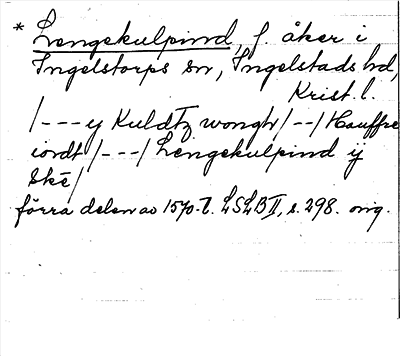 * Lengekulpind, f. åker i
Ingelstorps sn, Ingelstads hd,
Krist. l.
/--- y Kuldtz wongh /--/ Hauffre
iordt /---/ Lengekulpind ij
Ske/
förra delen av 1570-t. LSLB II, s. 298. orig.